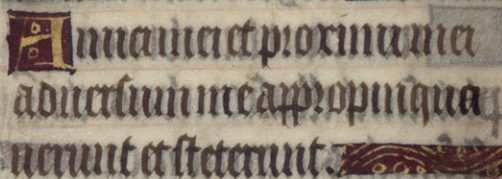 Amici mei et proximi mei
aduersum me appropinqua
uerunt et steterunt.